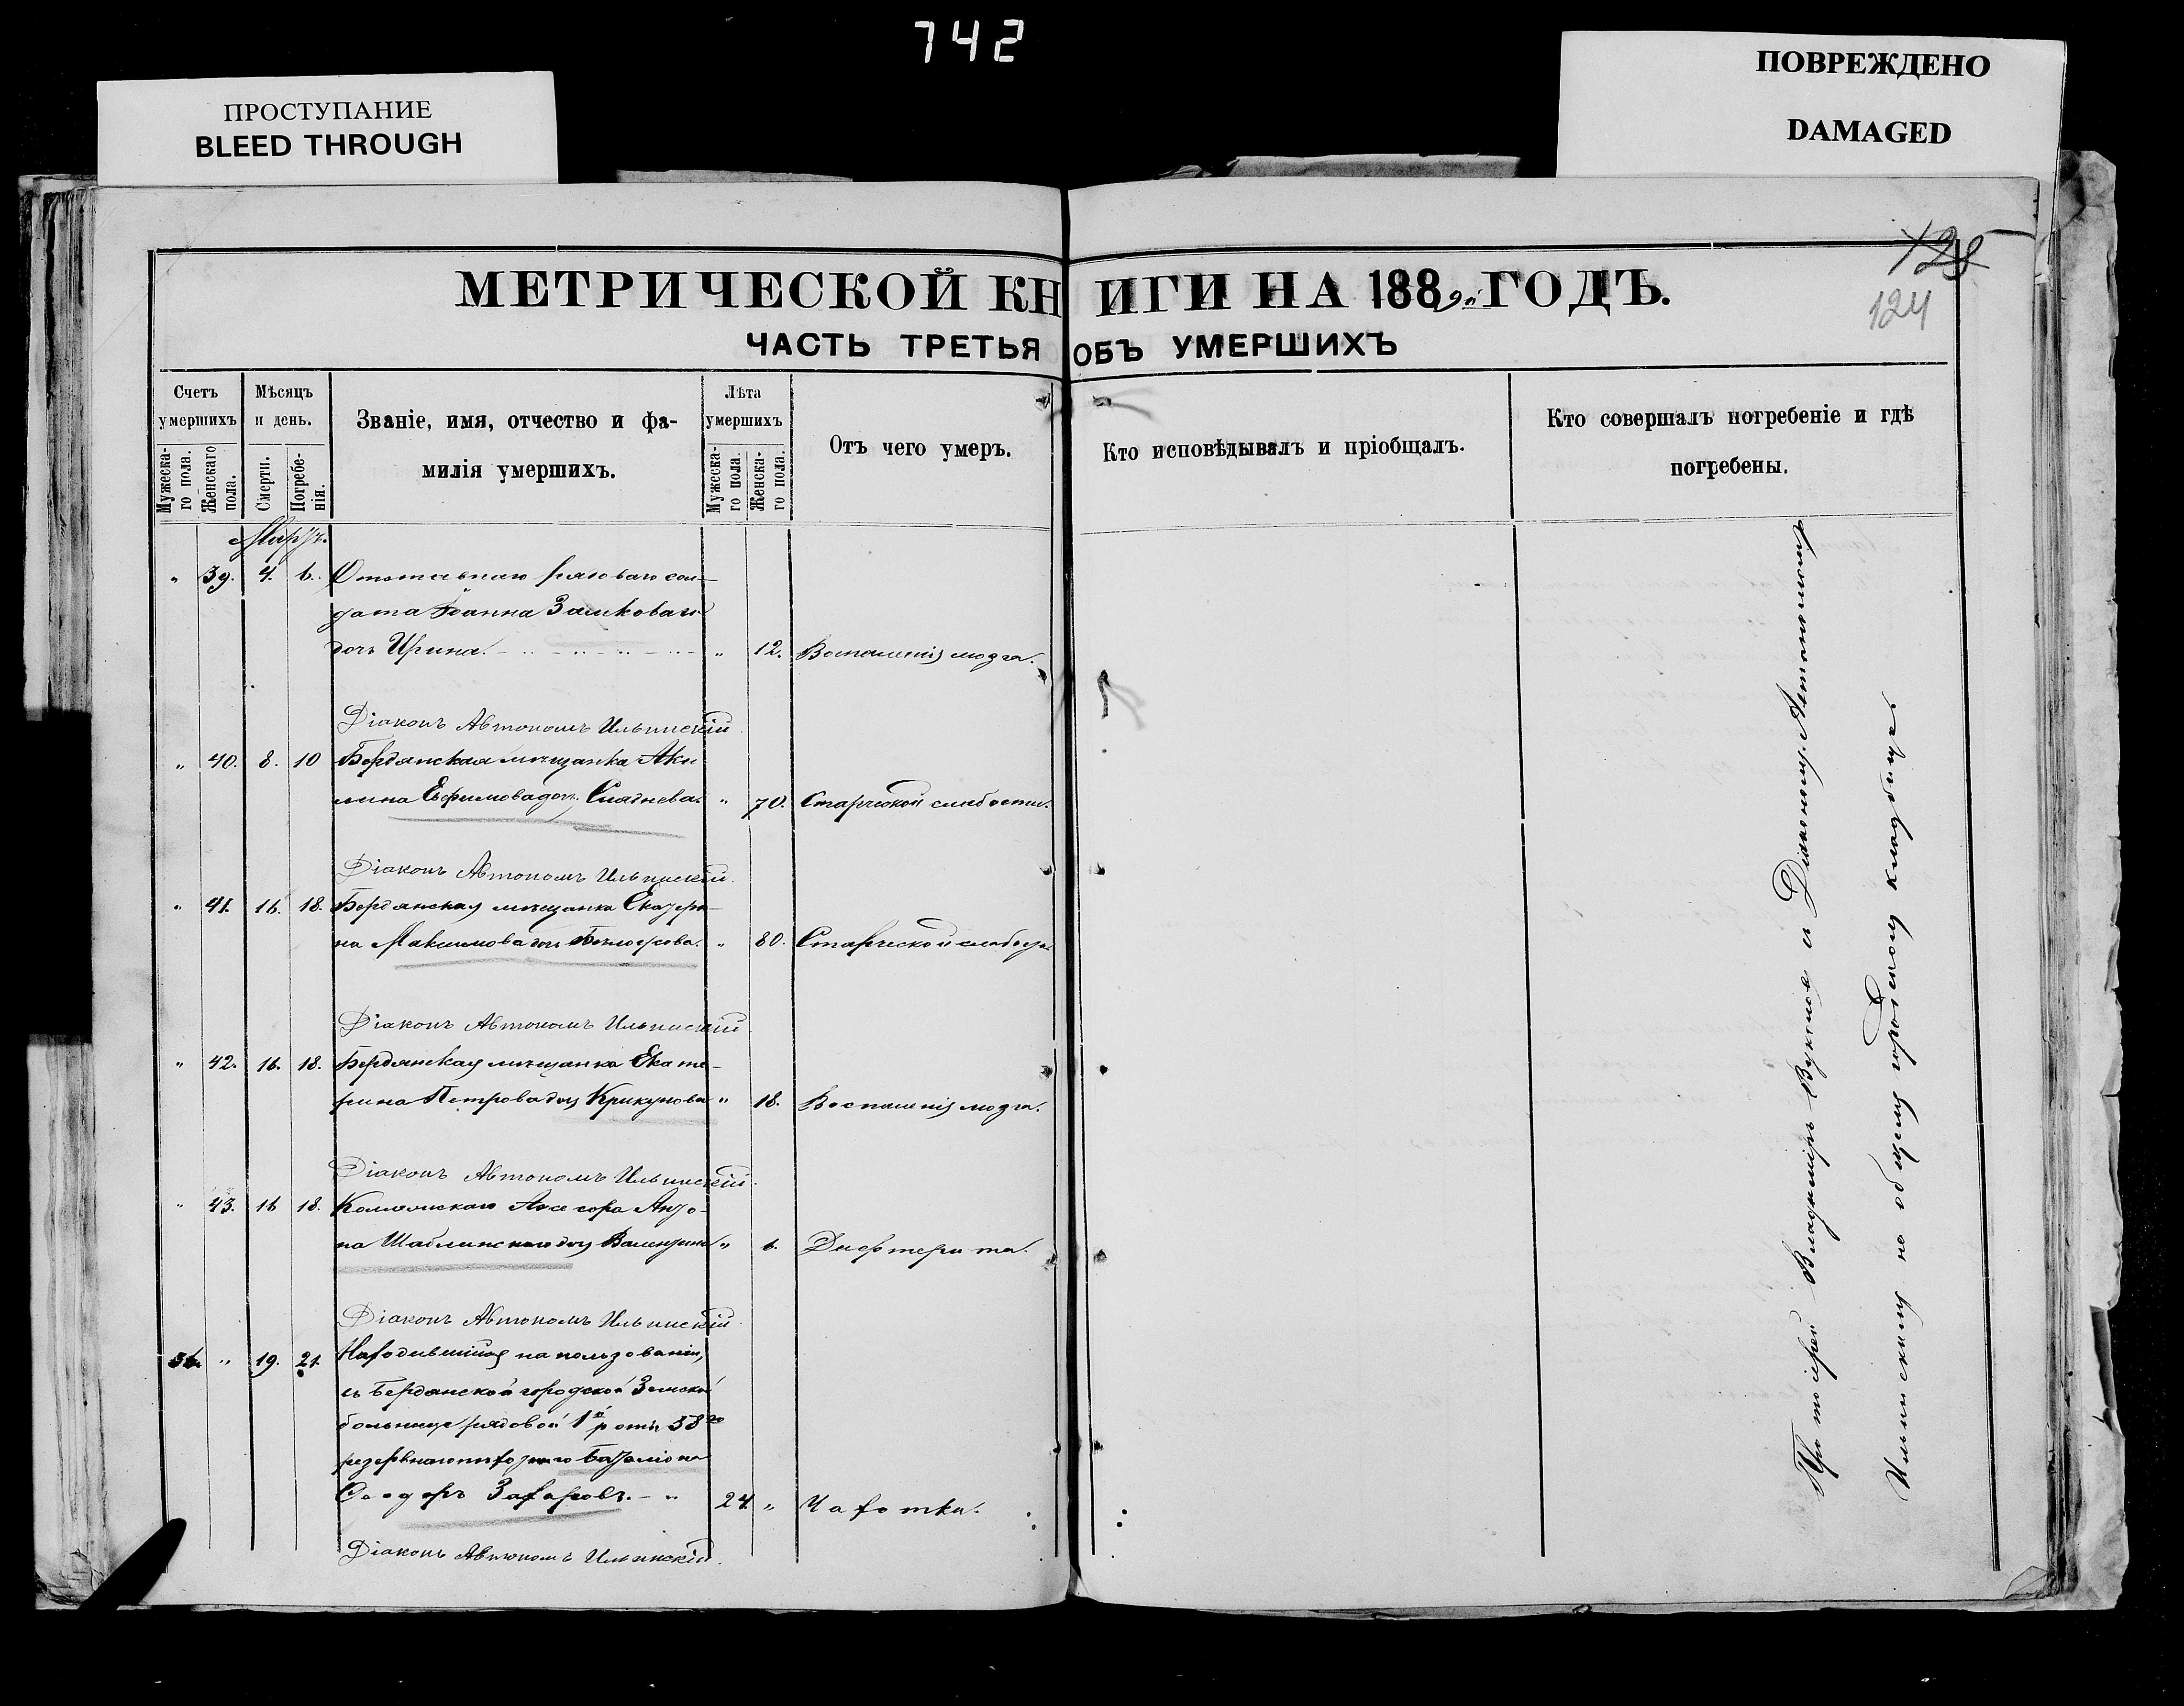 742
ПРОСТУПАНИЕ
BLEED THROUGH
ПОВРЕЖДЕНО
DAMAGED
125
124
МЕТРИЧЕСКОЙ КНИГИ НА 1889й ГОДЪ.
ЧАСТЬ ТРЕТЬЯ ОБЪ УМЕРШИХЪ
Счетъ умершихъ
Мужескаго пола.
Женскаго пола.
Мѣсяцъ и день.
Смерти.
Погребенія.
Званіе, имя, отчество и фа-
милія умершихъ.
Лѣта умершихъ
Мужескаго пола.
Женскаго пола.
Отъ чего умеръ.
Кто исповѣдывалъ и пріобщалъ.
Кто совершалъ погребеніе и гдѣ
погребены.
Мартъ.
" 39. 4. 6. рядоваго сол-
дата Іоанна Замковаго
дочь Ирина. " 12. Воспаленія мозга.
Діаконъ Автономъ Ильинскій
" 40. 8. 10 Бердянская мѣщанка Аки
лина Ефимова дочь " 70. Старческой слабости.
Діаконъ Автономъ Ильинскій.
" 41. 16. 18. Бердянская мѣщанка Екатери-
на Максимова дочь Бѣлоусова. " 80. Старческой слабости
Діаконъ Автономъ Ильинскій
" 42. 16. 18. Бердянская мѣщанка Екате-
рина Петрова дочь Крикунова " 18. Воспаленія мозга.
Діаконъ Автономъ Ильинскій.
" 43. 16 18. Ассесора Анто-
на Шаблинскаго дочь Валентина " 6. Дифтерита.
Діаконъ Автономъ Ильинскій
36. " 19. 21. Находившійся на пользованіи,
въ Бердянской городской Земской
больницѣ рядовой 1й роты 58го
резервнаго пѣхотнаго баталіона
Ѳеодоръ Захаровъ. " 24. " Чахотка.
Діаконъ Автономъ Ильинскій.
Протоіерей Владиміръ съ Діакономъ Автономомъ
Ильинскимъ на общемъ городскомъ кладбищѣ.